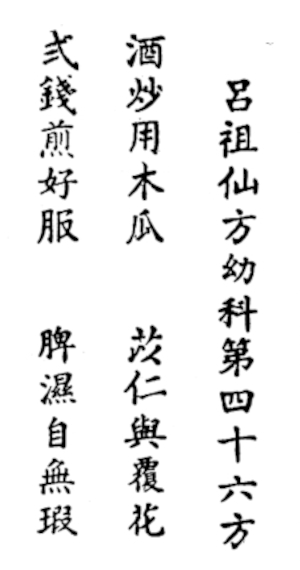 呂祖仙方幼科第四十六方
酒炒用木瓜 苡仁與覆花
弍錢煎好服 脾濕自無瑕